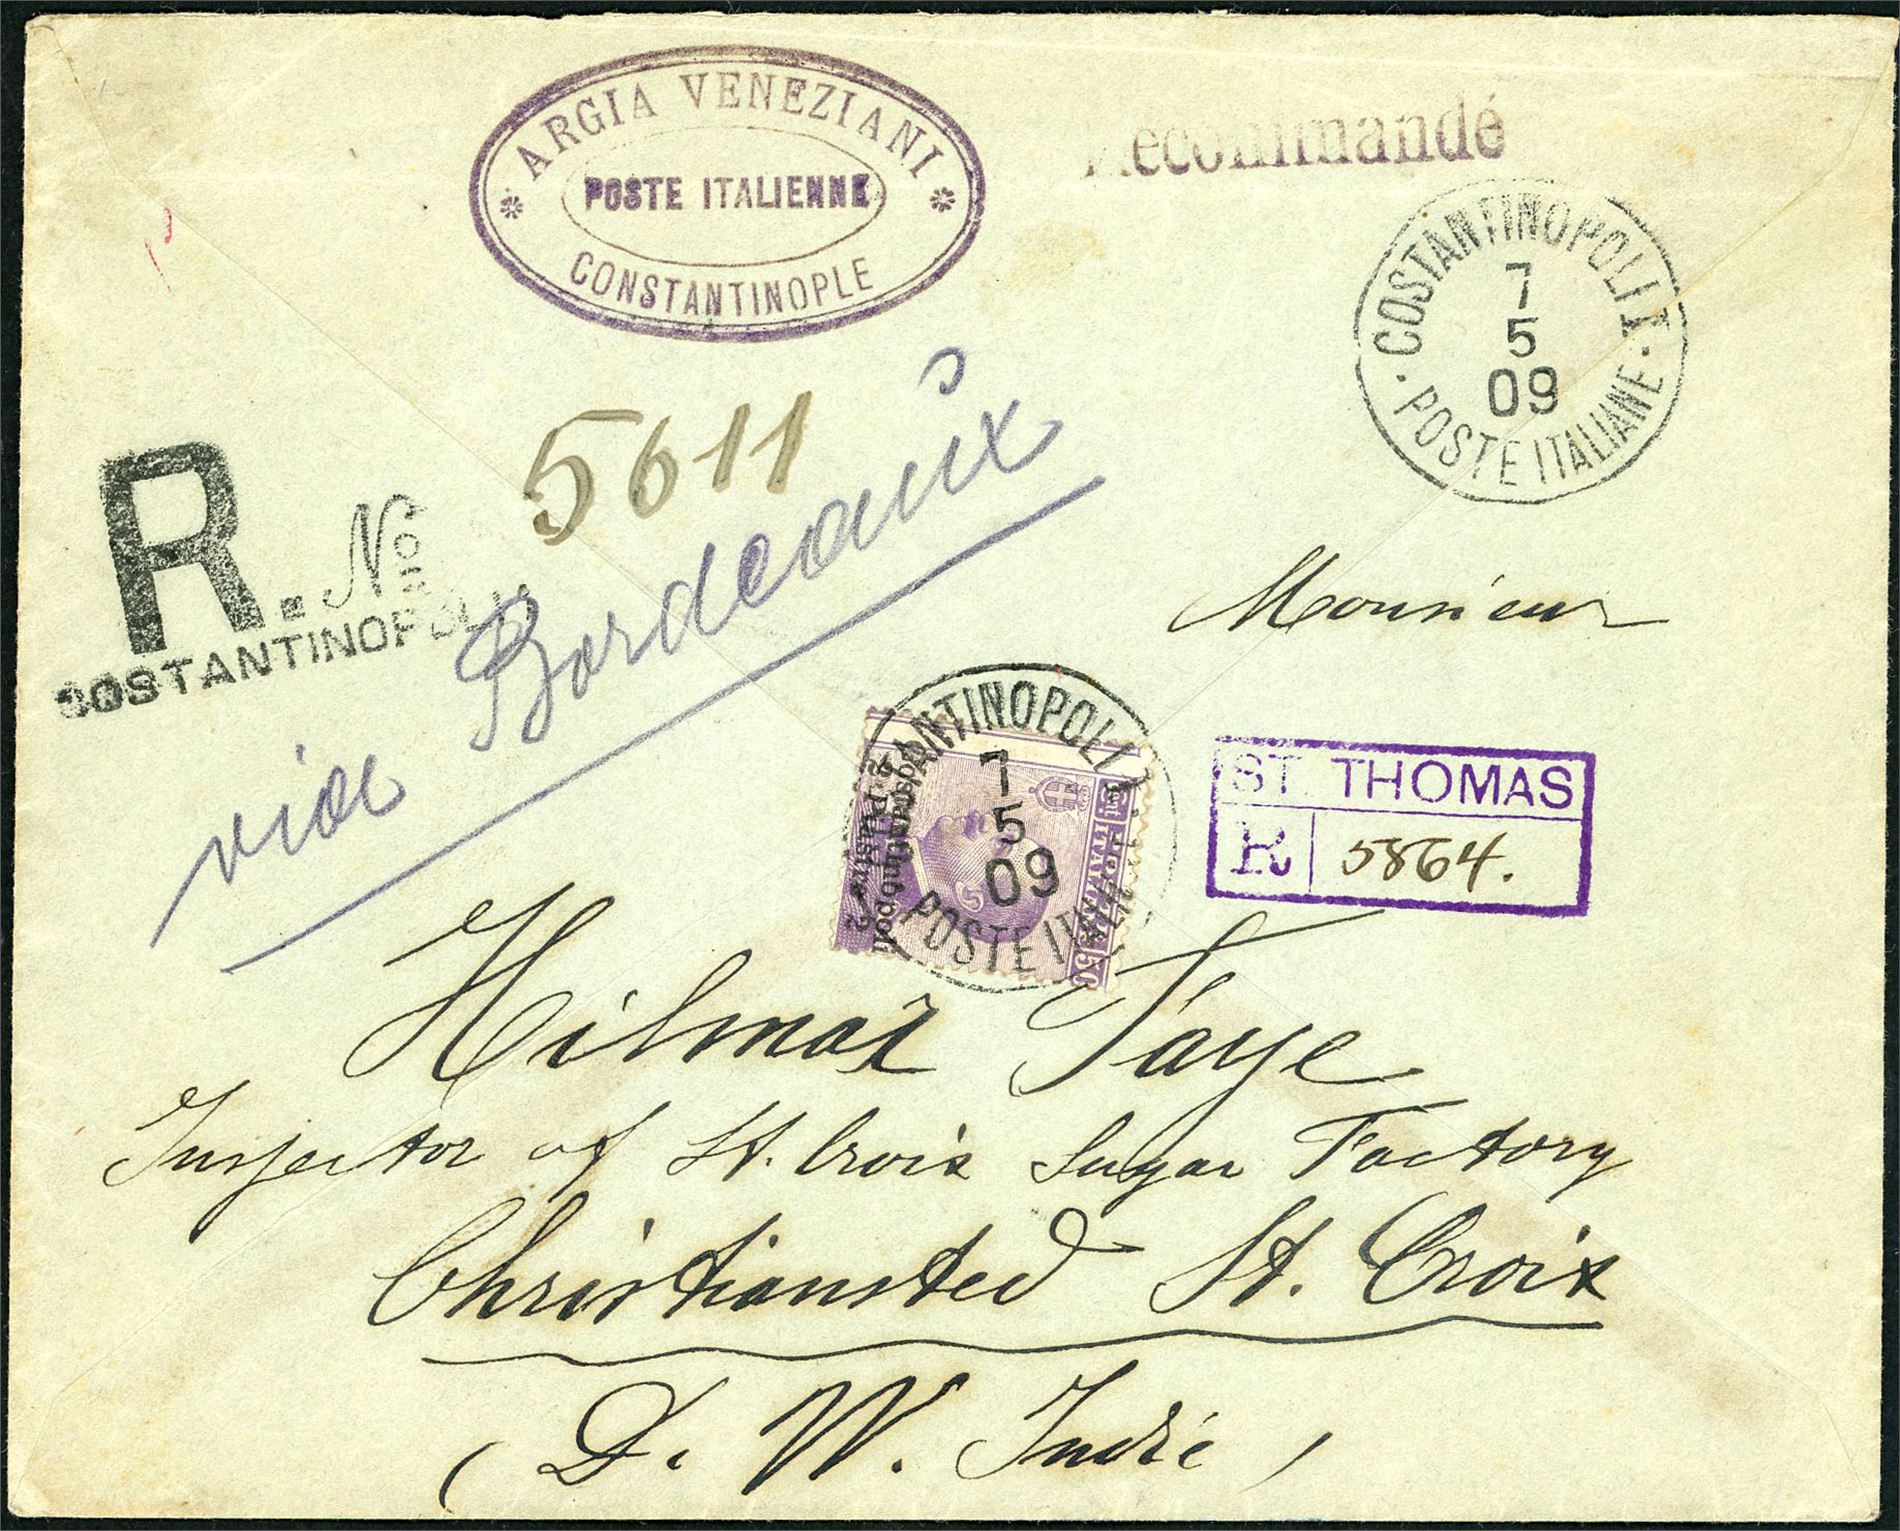 ARGIA VENEZIANI
POSTE ITALIENNE
CONSTANTINOPLE
Recommandé
COSTANTINOPOLI I
7
5
09
POSTE ITALIANE
R. No 5611
COSTANTINOPOLI
via Bordeaux
Monsieur
COSTANTINOPOLI
7
5
09
POSTE ITALIANE
Costantinopoli
2 Piastre 2
ST. THOMAS
R 5864.
Hilmar Faye
Inspector of St. Croix Sugar Factory
Christiansted St. Croix
(D. W. Indie)